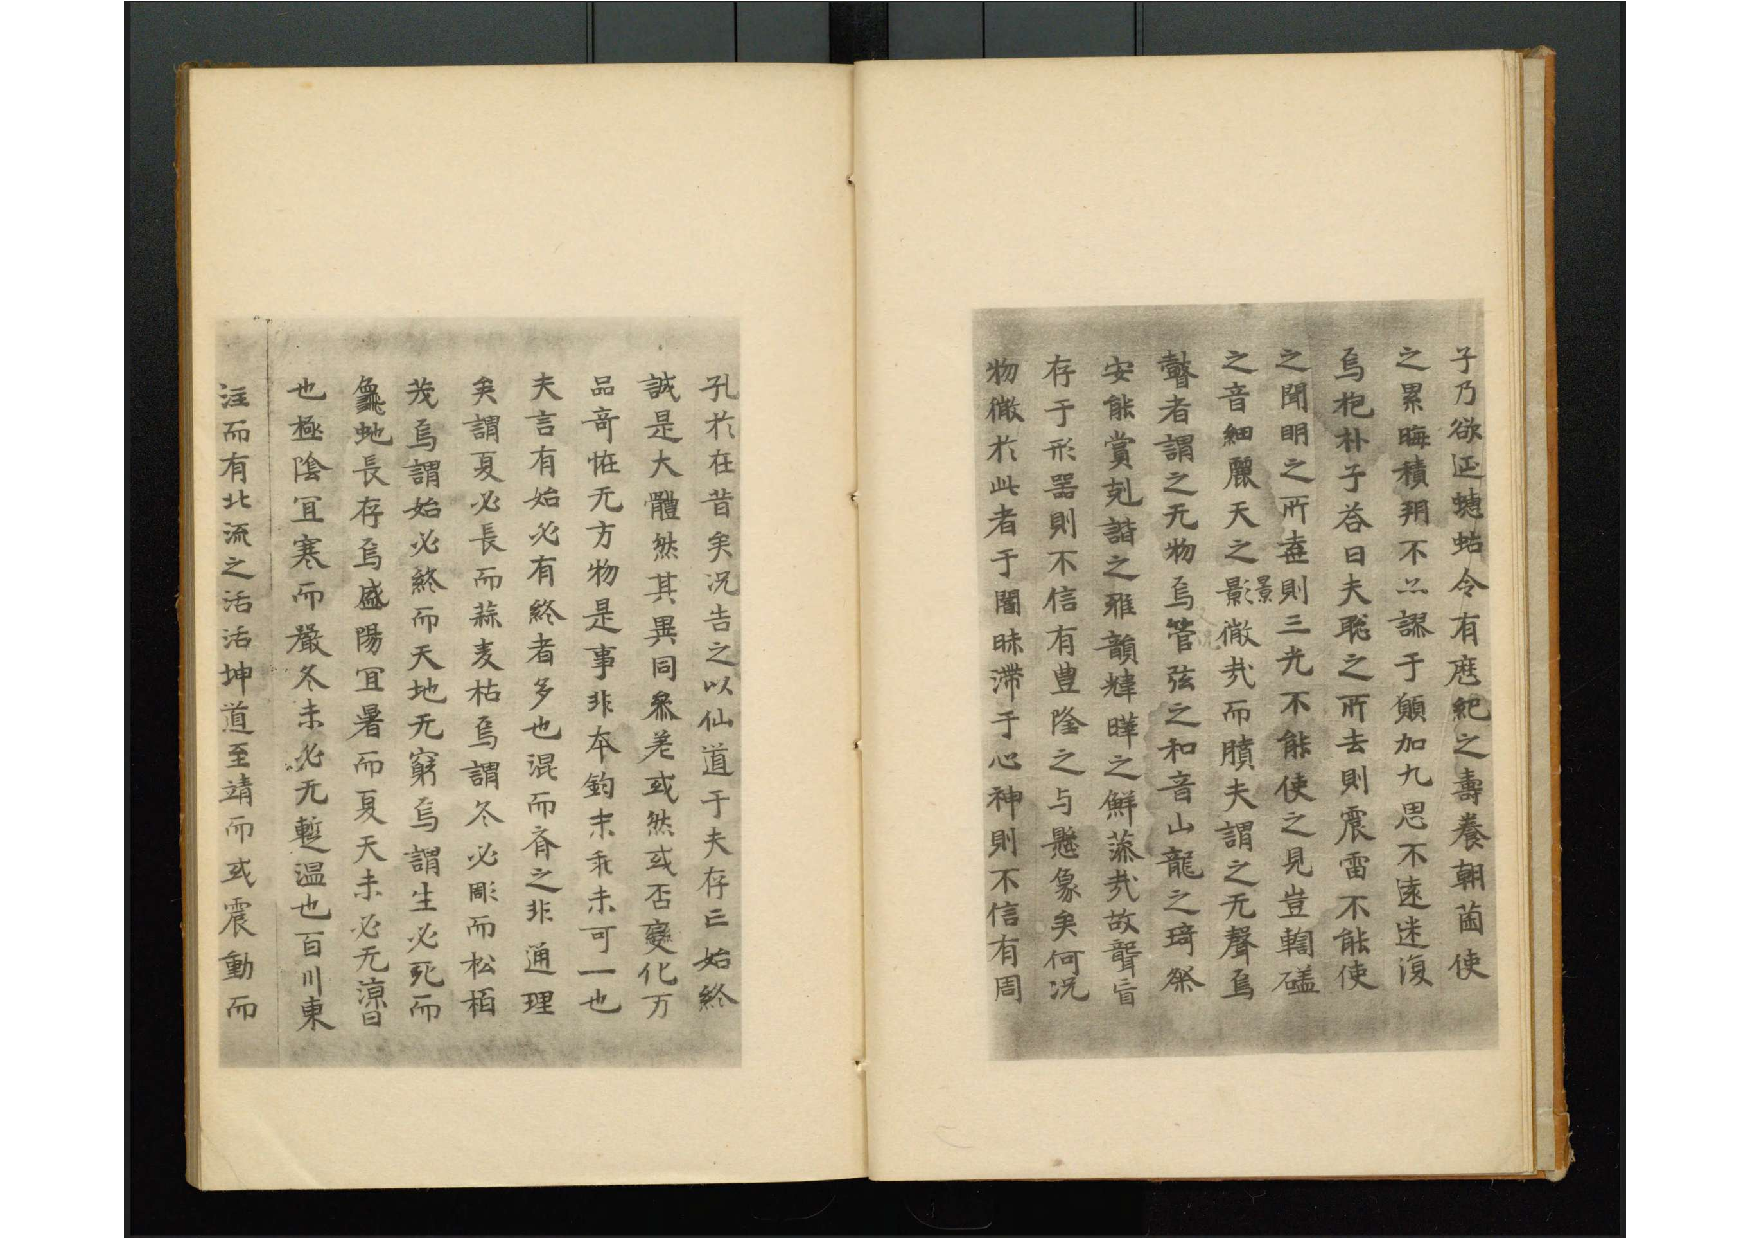 子乃欲延蟪蛄令有歷紀之壽養朝菌使
之累晦積朔不亦謬乎願加九思不遠迷復
焉抱朴子荅曰夫聡之所去則震雷不能使
之聞明之所棄則三光不能使之見豈輷磕
之音細麗天之景影微㢤而聵夫謂之无聲焉
瞽者謂之无物焉管弦之和音山龍之琦粲
安能賞剋諧之雅韻煒曄之鮮藻㢤故聾盲
存于形器則不信有豊隆之与懸象矣何况
物微於此者于闇昧滯于心神則不信有周
孔於在昔矣况告之以仙道于夫存亡始終
誠是大體然其異同叅差或然或否變化万
品竒恠无方物是事非本鈞末乖未可一也
夫言有始必有終者多也混而齊之非通理
矣謂夏必長而蒜麦枯焉謂冬必彫而松栢
茂焉謂始必終而天地无窮焉謂生必死而
龜虵長存焉盛陽冝暑而夏天未必无涼日
也極陰冝寒而嚴冬未必无蹔温也百川東
注而有北流之活活坤道至靖而或震動而